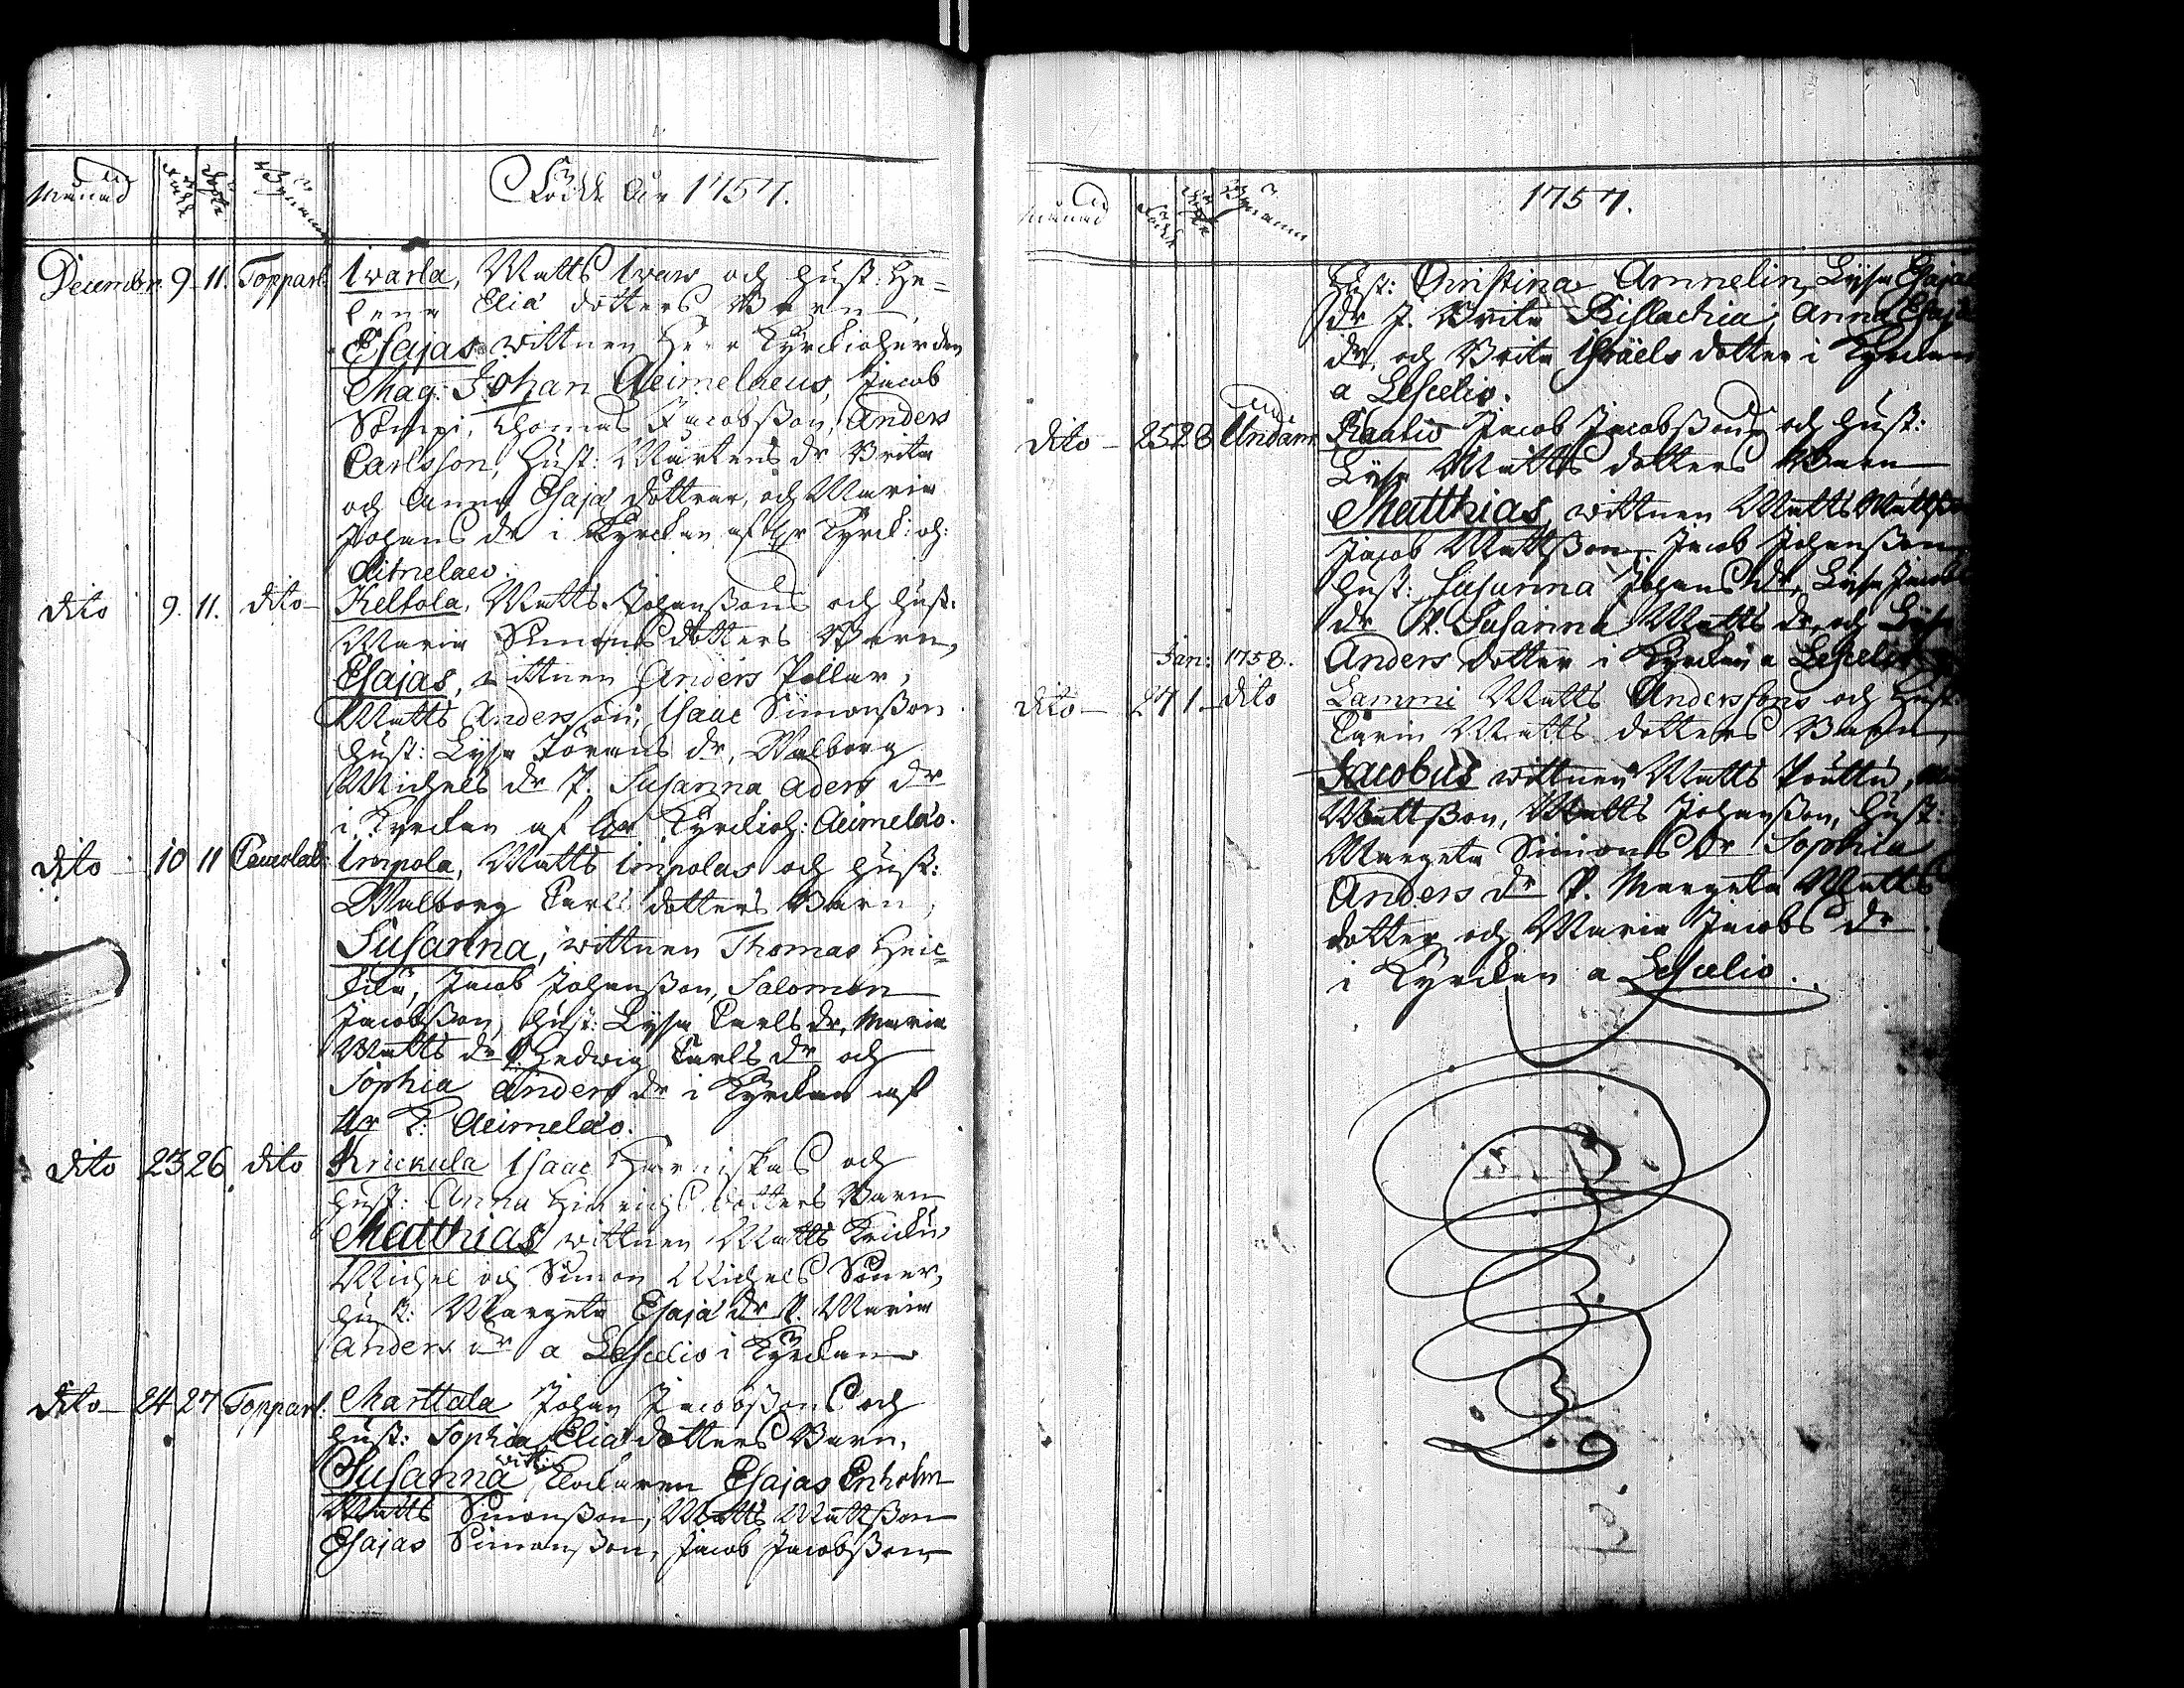 Månad Födde Döpte Bynamn Födde åhr 1757.
Decembr. 9 11. Toppari Iwarla, Matts Iwars och hust: He=
lena Eliæ dotters Barn,
Esajas, wittnen Herr Kyrckioherden
Mag: Johan Aeimelaeus, Jacob
Thomas Jacobsson, Anders
Carlsson, Hust: Mårtens dr Brita
och Anna Esajæ döttrar, och Maria
Johans dr i Kyrckan af Hr Kyrckioh:
Aeimelaeo.
dito 9. 11. dito Keltola, Matts Johanssons och hust:
Maria Simons dotters Barn,
Esajas, wittnen Anders Pollar,
Matts Andersson, Isaac Simonsson
hust: Lysa Jörans dr, Walborg
Michels dr P. Susanna Aders dr
i Kyrckan af Hr Kyrckioh: Aeimelæo.
dito 10 11 Impola, Matts Impolas och hust:
Walborg Carls dotters Barn,
Susanna, wittnen Thomas Heic=
kilä, Jacob Johansson, Salomon
Jacobsson, hust: Lysa Carls dr, Maria
Matts dr P. Hedwig Carls dr och
Sophia Anders dr i Kyrckan af
Hr K. Aeimelæo.
dito 23 26 dito Krickula Isaac och
hust: Anna Hinrichs dotters Barn
Matthias wittnen Matts Kricku
Michel och Simon Michels Söner,
hust: Margeta Esajæ dr P. Maria
Anders dr a Lescelio i Kyrckan
dito 24 27 Toppari. Marttala Johan Jacobssons och
hust: Sophia Eliæ dotters Barn,
witt:
Susanna, Klockaren Esajas Enholm
Matts Simonsson, Matts Mattsson
Esajas Simonsson, Jacob Jacobsson,
Månad Födde Döpte Bynamn 1757.
Hust: Christina Amnelin, Lysa Esajæ
dr P. Brita Anna Esajæ
dr, och Brita Israels dotter i Kyrckan
a Lescelio.
dito 25 28 Rautio Jacob Jacobssons och hust:
Lysa Matts dotters Barn
Matthias, wittnen Matts Mattsson
Jacob Mattsson, Jacob Johansson,
hust: Susanna Johans dr, Lysa Jacobs
dr P. Susanna Matts dr och Lysa
Jan: 1758. Anders dotter i Kyrckan a Lescelio
dito 27 1 dito Lammi Matts Anderssons och hust:
Carin Matts dotters Barn,
Jacobus wittnen Matts Pouttu,
Mattsson, Matts Johansson, hust:
Margeta Simons dr Sophia
Anders dr P. Margeta Matts
dotter och Maria Jacobs dr
i Kyrckan a Lescelio.